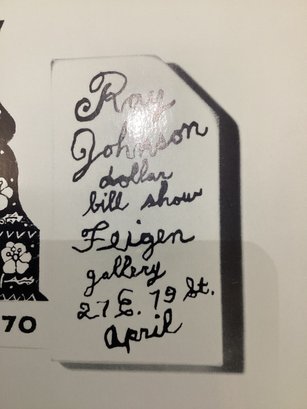 Ray
Johnson
dollar
bill show
Feigen
gallery
27 E. 79 St.
April
70